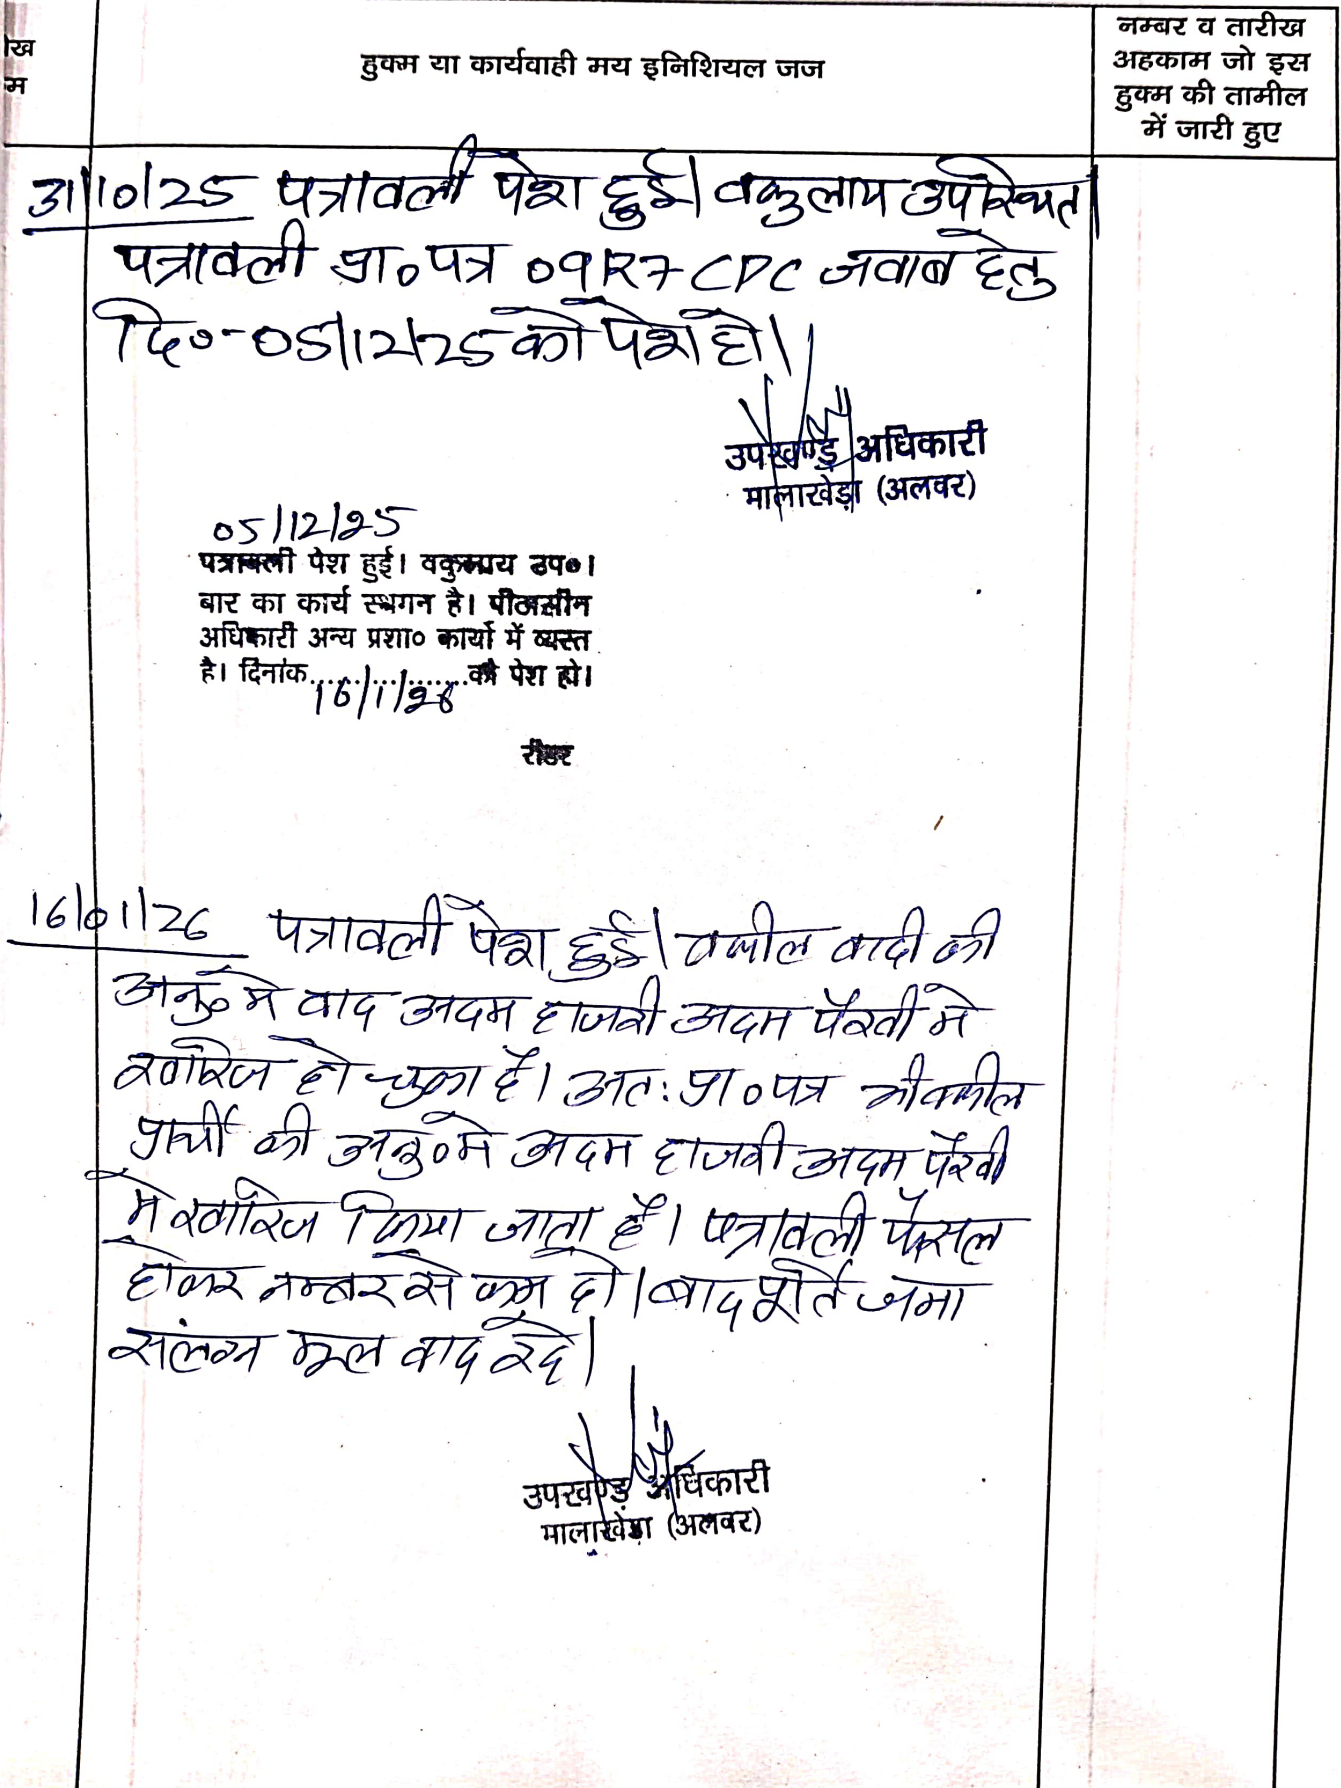 ख
म
हुक्म या कार्यवाही मय इनिशियल जज
नम्बर व तारीख
अहकाम जो इस
हुक्म की तामील
में जारी हुए
31/10/25 पत्रावली पेश हुई। वकुलाय उपस्थित।
पत्रावली प्रा० पत्र 09R7 CPC जवाब हेतु
दि०-05/12/25 को पेश हो।
उपखण्ड अधिकारी
मालाखेड़ा (अलवर)
05/12/25
पत्रावली पेश हुई। वकुलाय उप०।
बार का कार्य स्थगन है। पीठासीन
अधिकारी अन्य प्रशा० कार्यो में व्यस्त
है। दिनांक..................को पेश हो।
16/1/26
रीडर
16/01/26 पत्रावली पेश हुई। वकील वादी की
अनु० मे वाद अदम हाजरी अदम पैरवी मे
खारिज हो चुका है। अतः प्रा० पत्र वकील
प्रार्थी की अनु० मे अदम हाजरी अदम पैरवी
मे खारिज किया जाता है। पत्रावली फैसल
होकर नम्बर से कम हो। बाद पूर्ति जमा
सलंग्न मूल वाद रहे।
उपखण्ड अधिकारी
मालाखेड़ा (अलवर)